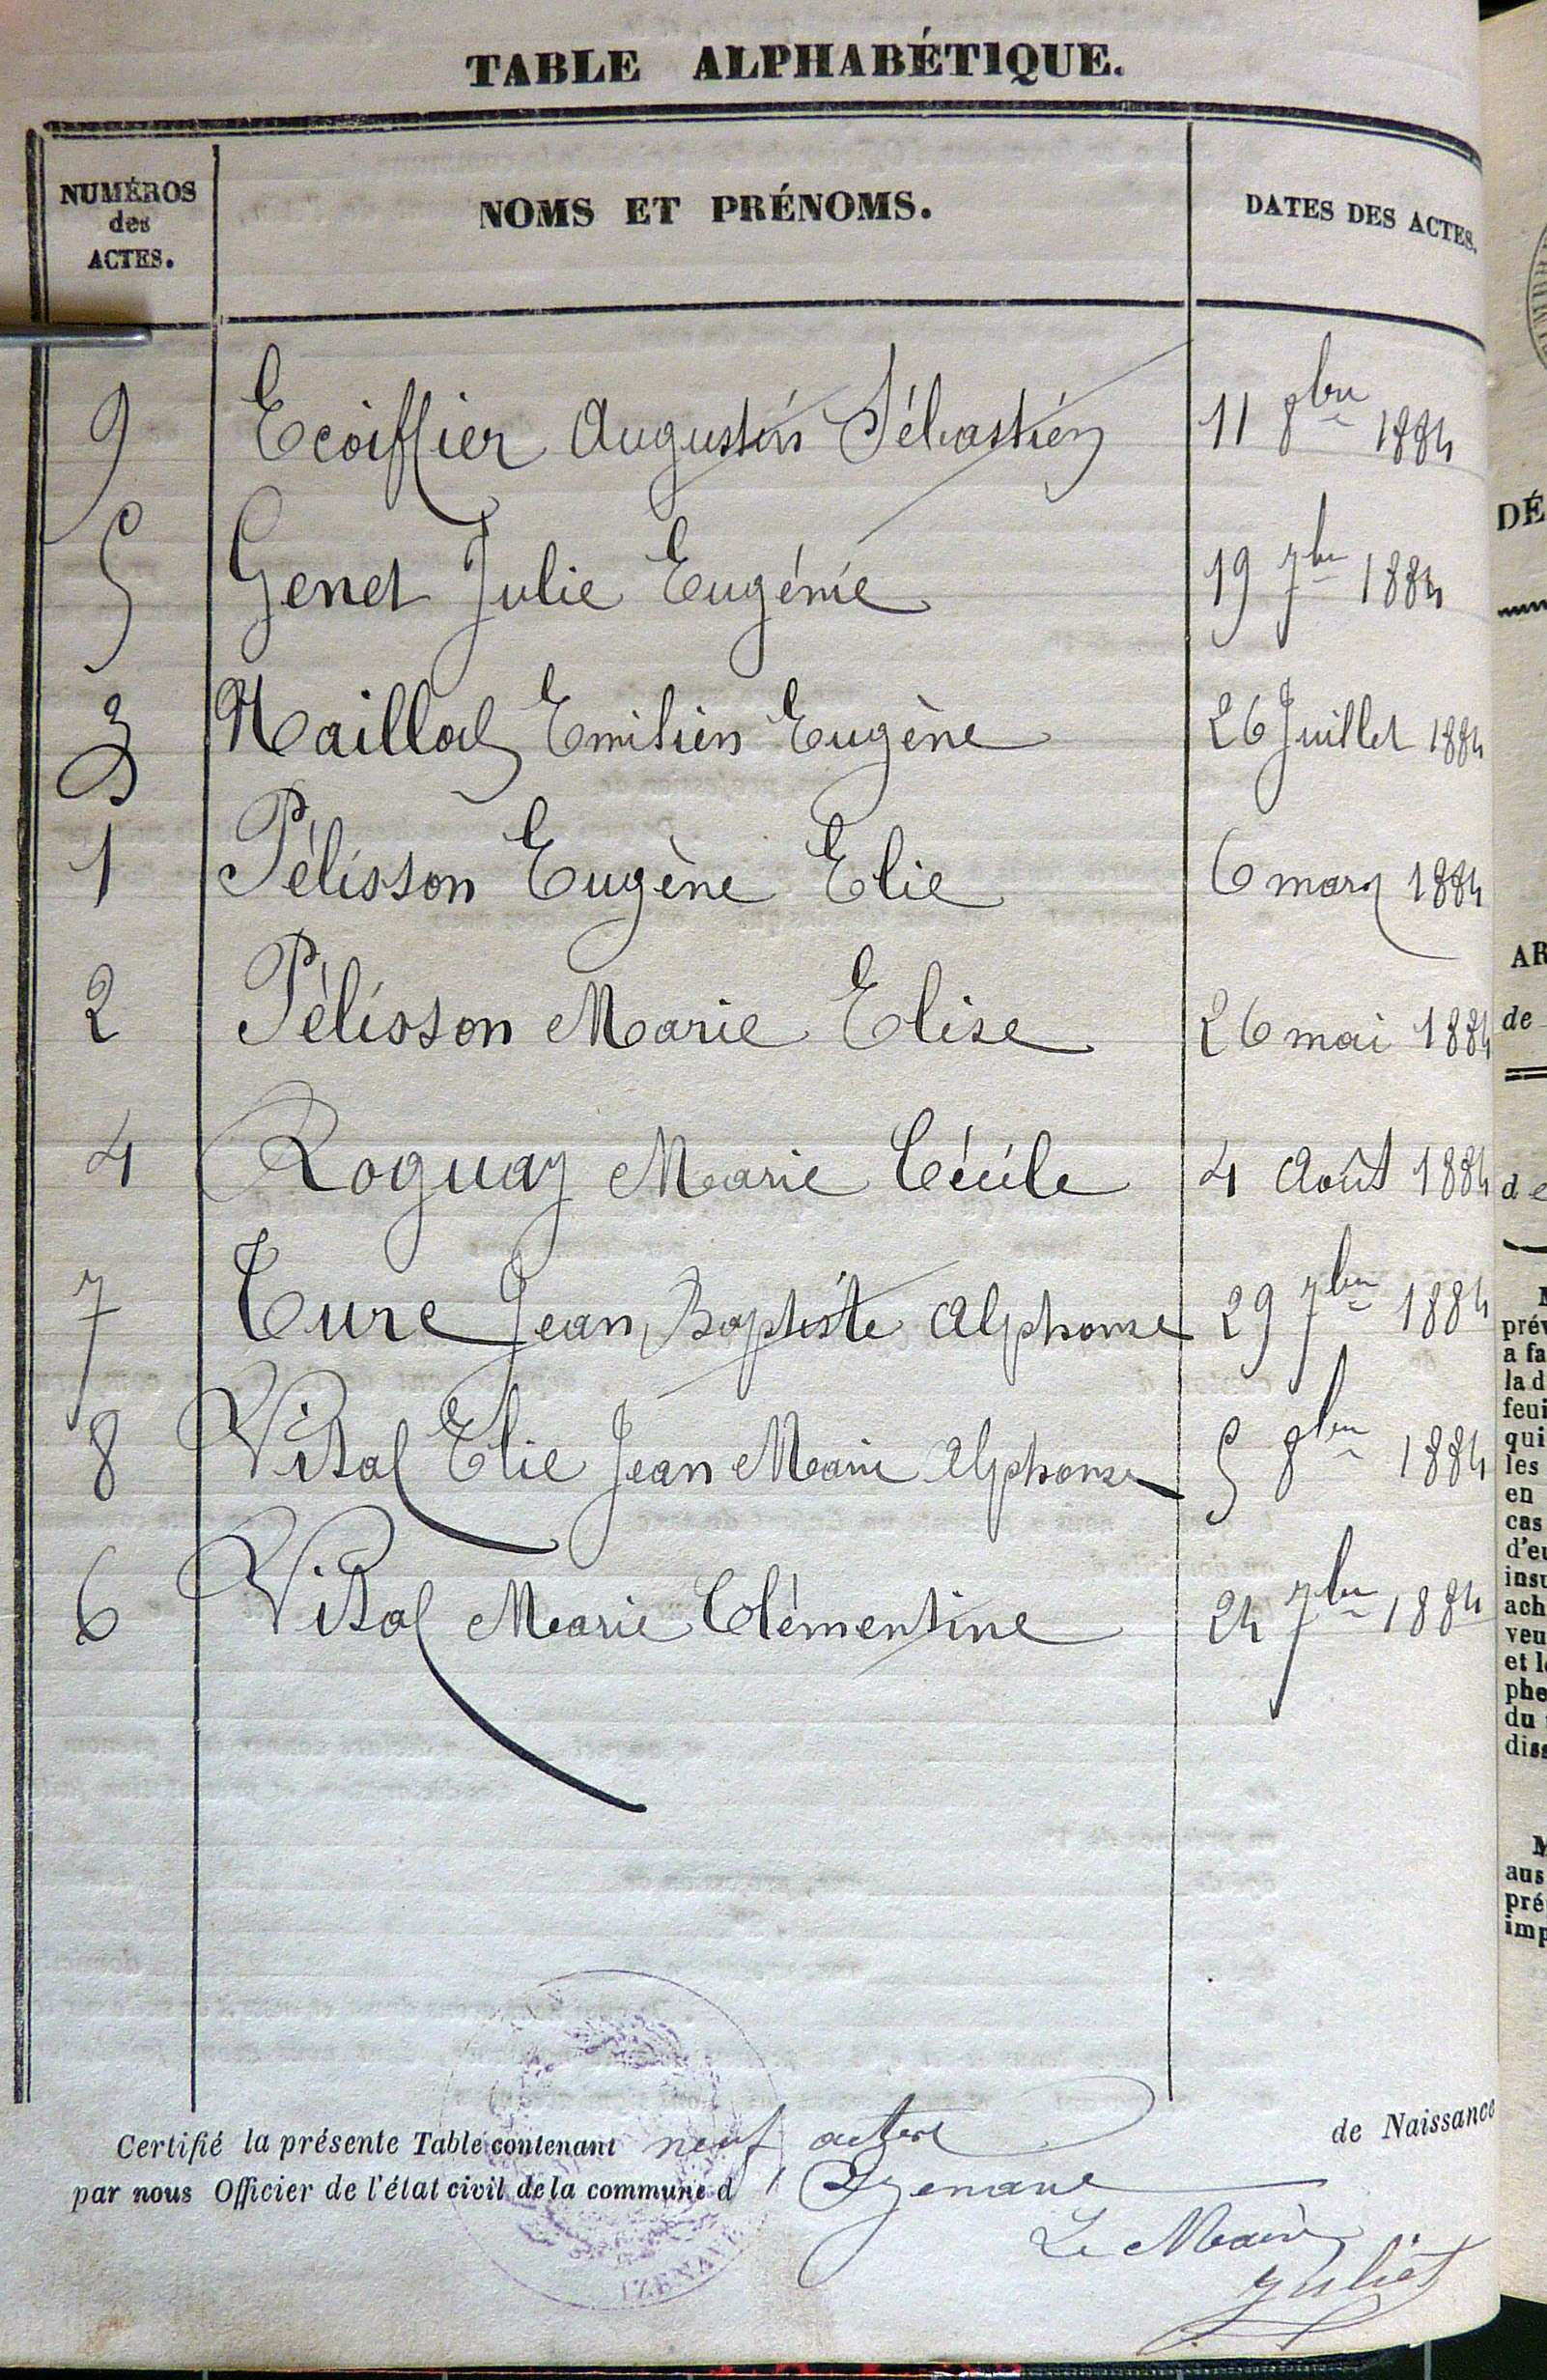 TABLE ALPHABÉTIQUE.
NUMÉROS des ACTES. NOMS ET PRÉNOMS. DATES DES ACTES.
9 Ecoiffier Augustin Sébastien 11 8bre 1884
5 Genet Julie Eugénie 19 7bre 1884
3 Maillod Emilien Eugène 26 Juillet 1884
1 Pélisson Eugène Elie 6 mars 1884
2 Pélisson Marie Elise 26 mai 1884
4 Roguay Marie Cécile 4 Août 1884
7 Ture Jean Baptiste Alphonse 29 7bre 1884
8 Vital Elie Jean Marie Alphonse 5 8bre 1884
6 Vital Marie Clémentine 24 7bre 1884
Certifié la présente Table contenant neuf actes de Naissance
par nous Officier de l'état civil de la commune d'Izenave
Le Maire
Juliet
IZENAVE
DÉ
AR
de
de
prév
a fa
la d
feui
qui
les
en
cas
d'eu
insu
ach
veu
et le
phe
du
diss
aus
pré
imp